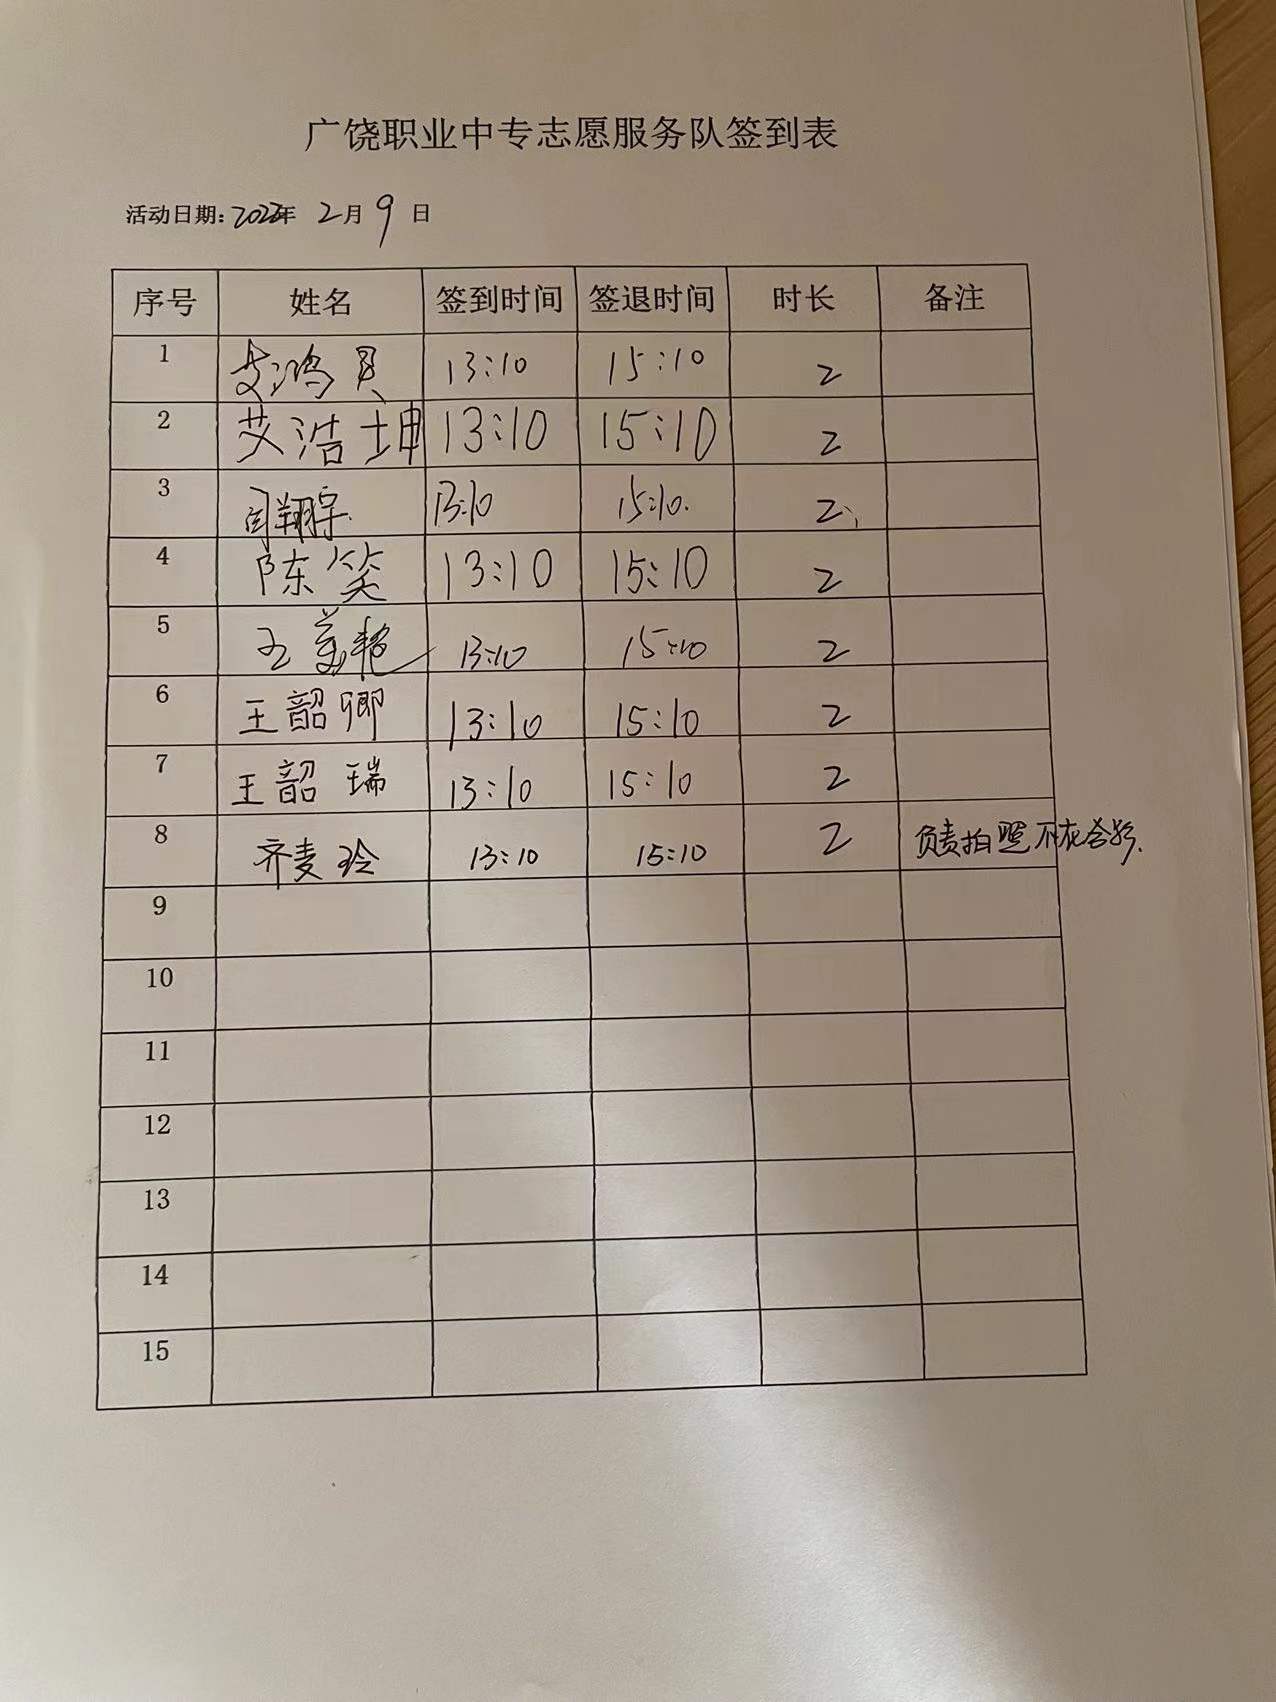 广饶职业中专志愿服务队签到表
活动日期:2022年 2月 9 日
序号 姓名 签到时间 签退时间 时长 备注
1 艾鸿具 13:10 15:10 2
2 艾浩坤 13:10 15:10 2
3 闫翔宇 13:10 15:10 2
4 陈笑 13:10 15:10 2
5 王美艳 13:10 15:10 2
6 王韶卿 13:10 15:10 2
7 王韶瑞 13:10 15:10 2
8 齐麦玲 13:10 15:10 2 负责拍照不在合影.
9
10
11
12
13
14
15